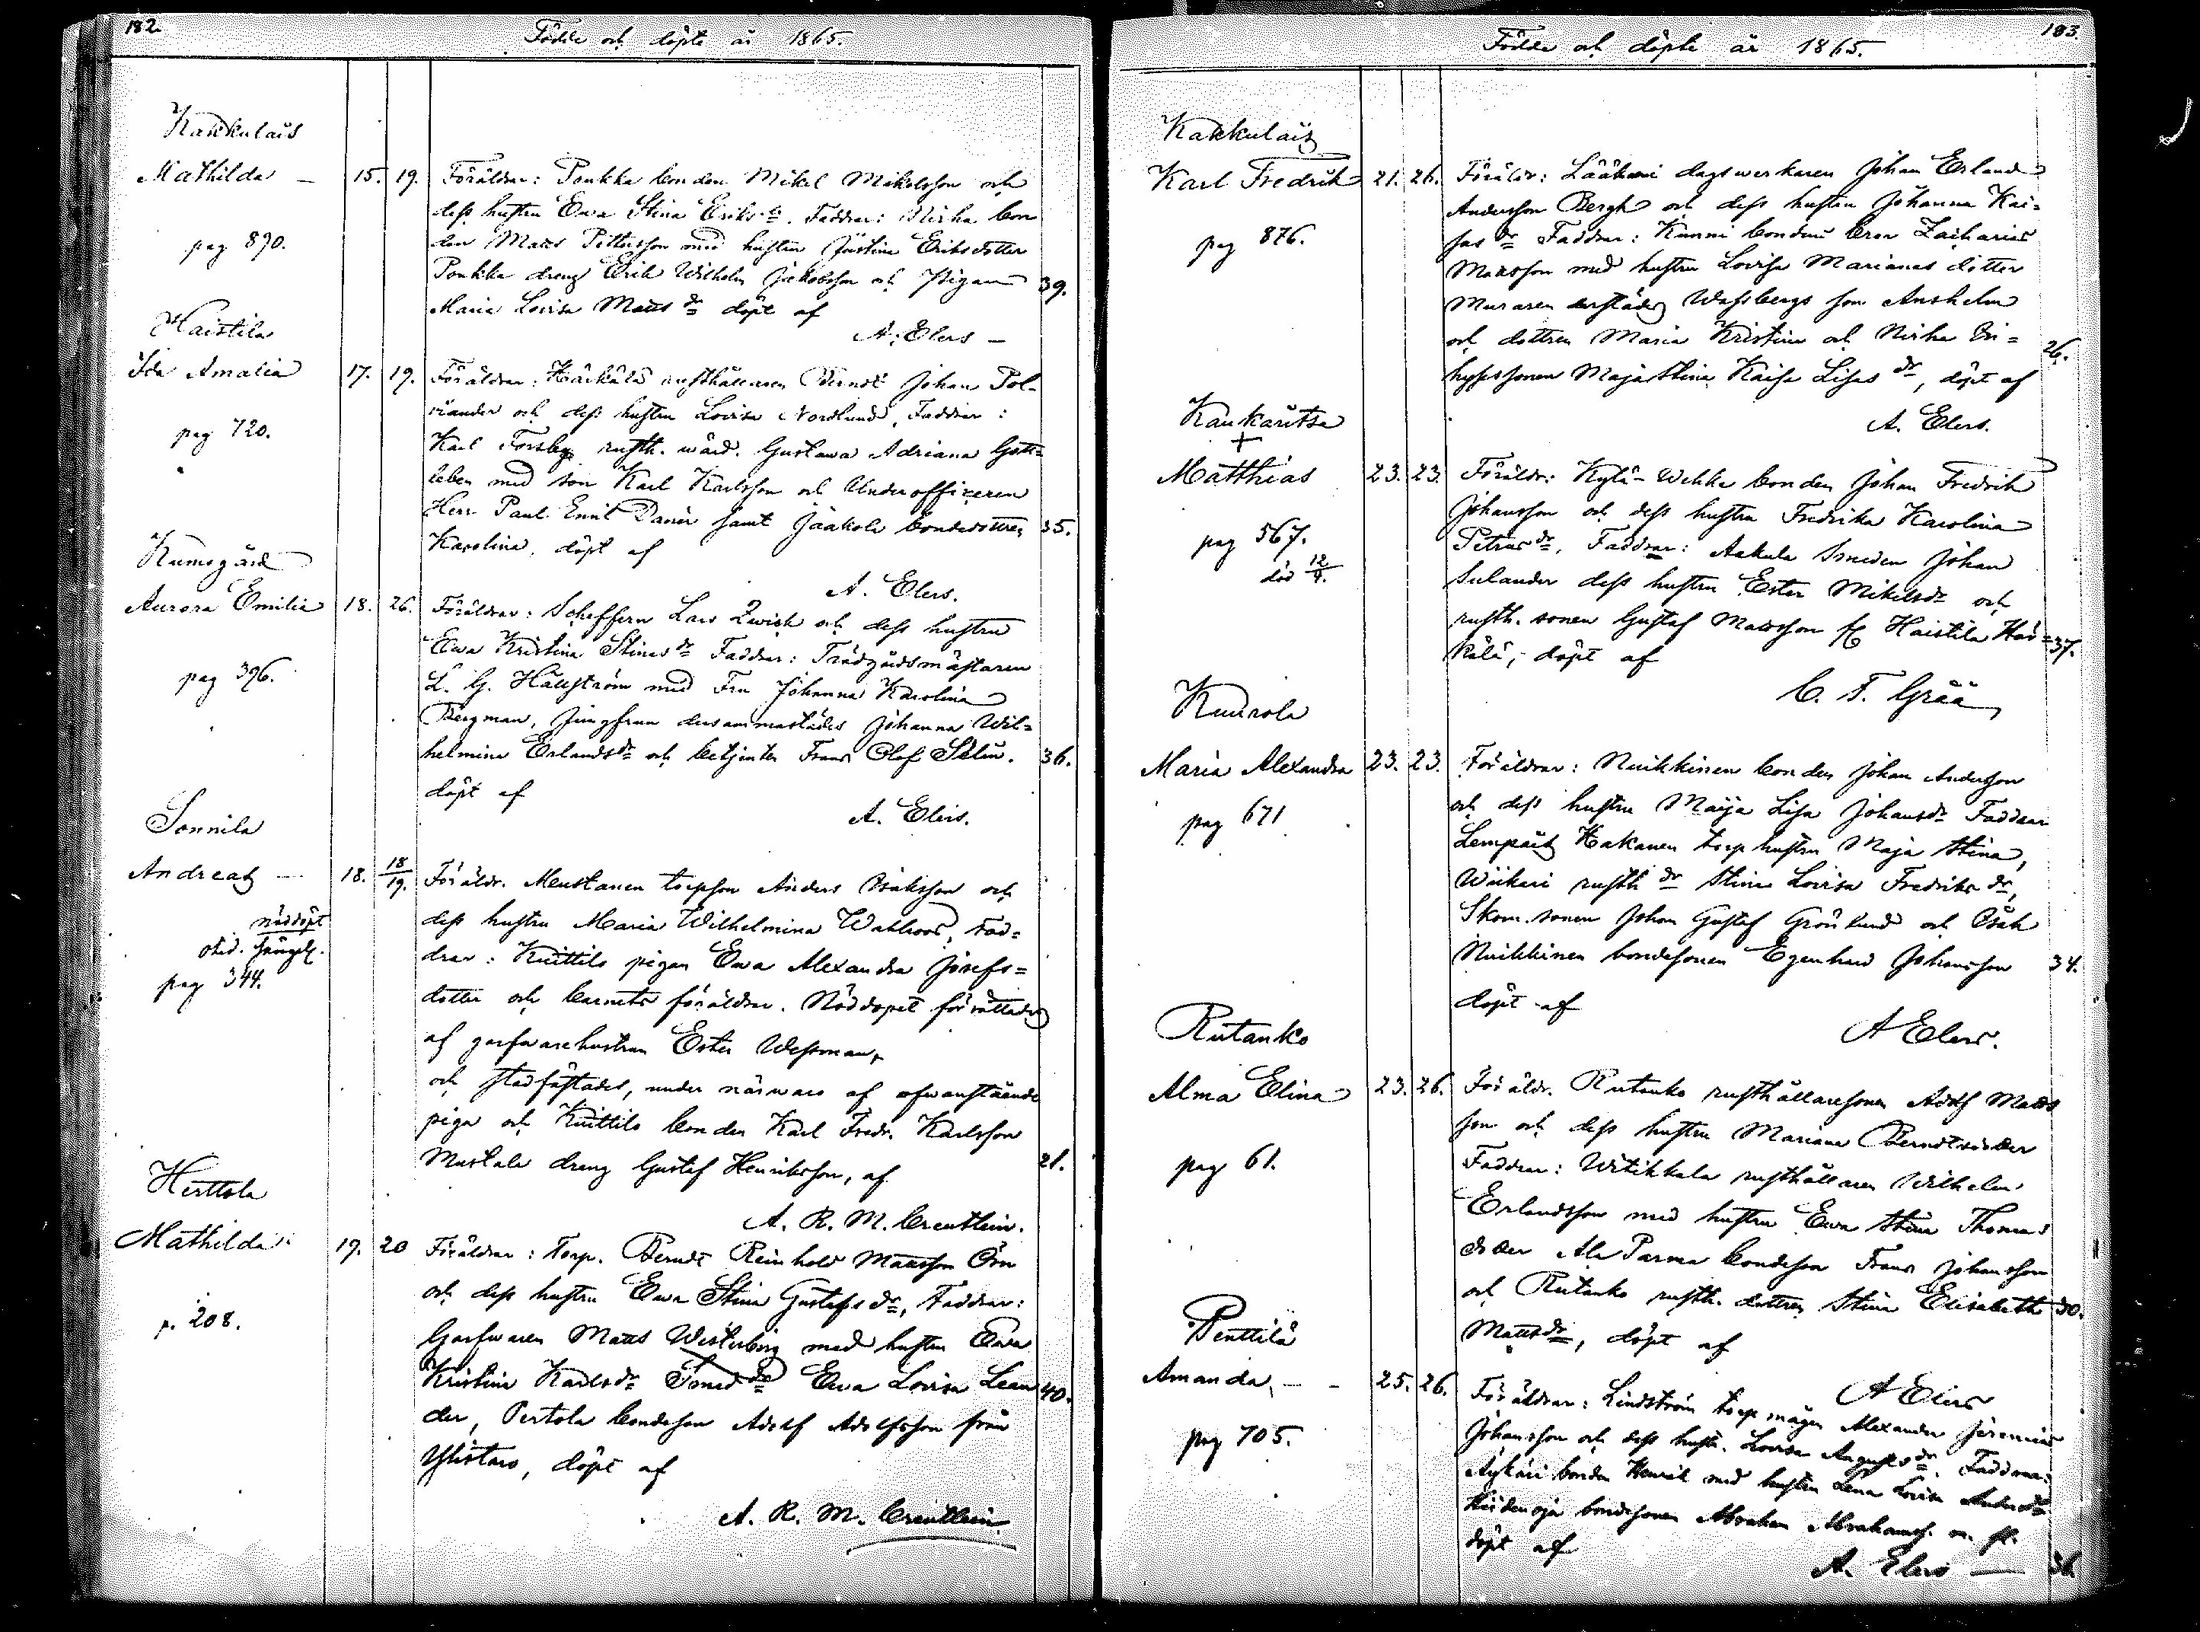 182.
Födde och döpte år 1865.
Kakkulais
Mathilda — 15. 19. Föräldrar: Poukka bonden Mikel Mikelsson och
dess hustru Ewa Stina Eriks dr. Faddrar: Nirha bon
pag 890. den Matts Pettersson med hustru Justina Eriksdotter
Poukka dreng Erik Wilhelm Jakobsson och Pigan 39.
Maria Lovisa Matts dr döpt af
A. Elers —
Haistila
Ida Amalia 17. 19. Föräldrar: Härkälä rusthållaren Berndt Johan Pol-
viander och dess hustru Lovisa Nordlund, Faddrar:
pag 720. Karl Forsberg rusth. wärd. Gustawa Adriana Gott-
leben med son Karl Karlsson och Underofficeren
Herr Paul Emil Danér samt Jaakola bondedottren 35.
Karolina, döpt af
A. Elers.
Kumogård
Aurora Emilia 18. 26. Föräldrar: Scheffern Lars Qwick och dess hustru
Ewa Kristina Stinas dr Faddrar: Trädgårdsmästaren
pag 396. L. G. Hällström med Fru Johanna Karolina
Bergman, Jungfrun dersammastädes Johanna Wil=
helmina Erlands dr och betjenten Frans Olof Selin. 36.
döpt af
A. Elers.
Sonnila
Andreas — 18. 18/19. Föräldr. Meustanen torpson Anders Isaksson och
nöddöpt dess hustru Maria Wilhelmina Wahlroos, Fad=
drar: Knittilä pigan Ewa Alexandra Josefs=
pag 344. dotter och barnets föräldrar. Nöddopet förrättades
af garfwarehustrun Ester Westman,
och stadfästades, under närwaro af ofwanstående
piga och Knittilä bonden Karl Fredr. Karlsson
Mustala dreng Gustaf Henriksson, af 21.
A. R. M. Creutlein.
Herttola
Mathilda 19. 20 Föräldrar: Torp. Berndt Reinhold Mattsson Örn
och dess hustru Ewa Stina Gustafs dr, Faddrar:
p. 208. Garfwaren Matts Westerberg med hustru Ewa
Kristina Karlsdr Smed dr Ewa Lovisa Lean 40.
der, Pertola bondeson Adolf Adolfsson från
Ylistaro, döpt af
A. R. M. Creutlein.
183.
Födde och döpte år 1865.
Kakkulais
Karl Fredrik 21. 26. Föräldr: Lääkäri dagswerkaren Johan Erland
Andersson Bergh och dess hustru Johanna Kai-
pag 876. sas dr Faddrar: Kunni bondens bror Zacharias
Mattsson med hustru Lovisa Marianas dotter
Muraren derstädes Wassbergs son Anshelm
och dottren Maria Kristina och Nirha In= 26.
hyssonen Maja Stina Kaisa Lisas dr, döpt af
A. Elers.
Kaukaritsa
+
Matthias 23. 23. Föräldr: Kylä-Wehke bonden Johan Fredrik
Johansson och dess hustru Fredrika Karolina
pag 567. Petrus dr, Faddrar: Aakula Smeden Johan
död 12/4. Sulander dess hustru Ester Mikelsdr och
rusth. sonen Gustaf Mattsson fr Haistila Här= 37.
kälä, döpt af
C. F. Grää
Kuurola
Maria Alexandra 23. 23. Föräldrar: Nuikkinen bonden Johan Andersson
och dess hustru Maija Lisa Johansdr Faddrar
pag 671 Lempäis Kakanen torp hustru Maja Stina,
Wiikari rusth dr Stina Lovisa Fredriks dr,
Skom. sonen Johan Gustaf Grönlund och Isak
Nuikkinen bondesonen Egenhard Johansson 34.
döpt af
A Elers.
Rutanko
Alma Elina 23. 26. Föräldr. Rutanko rusthållaresonen Adolf Matts
son och dess hustru Mariana Berndtsdotter
pag 61. Faddrar: Witikkala rusthållaren Wilhelm
Erlandsson med hustru Ewa Stina Thomas
dotter Ala Parma bondeson Frans Johansson
och Rutanko rusth. dottren Stina Elisabeth 30.
Mattsdr, döpt af
A Elers
Penttilä
Amanda. — 25. 26. Föräldrar: Lindström torp mågen Alexander Jeremias
Johansson och dess hustr. Lovisa Augusts dr. Faddrar:
pag 705. bonden Henrik med hustru Lena Lovisa
bondesonen Abraham Abrahams. m. fl.
döpt af
A. Elers — 36.